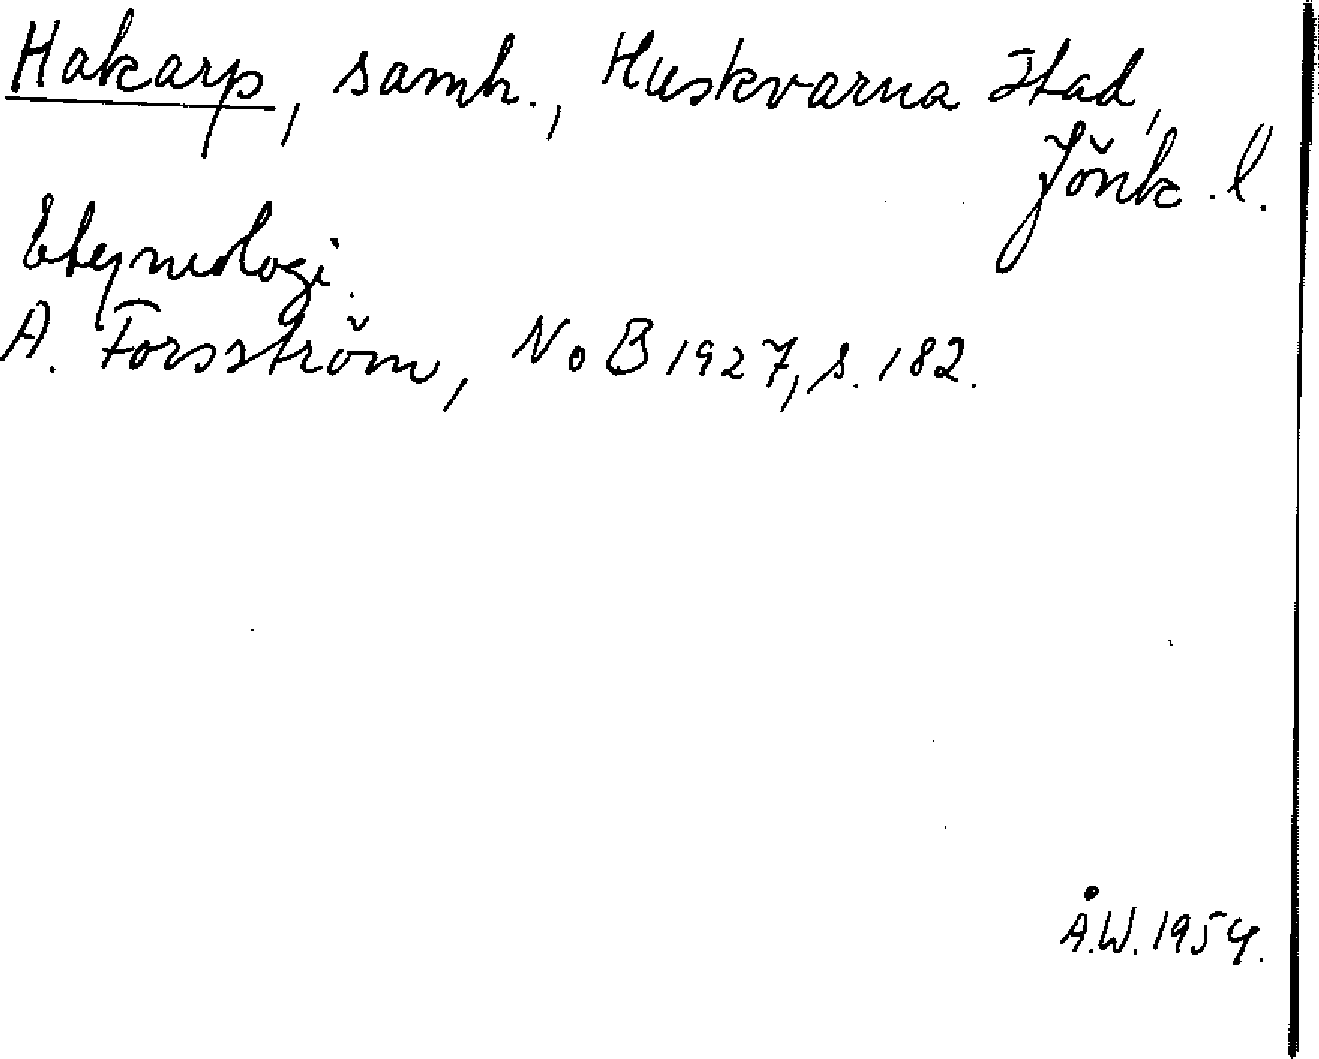 Hakarp, samh., Huskvarna stad,
Jönk. l.
Etymologi.
A. Forsström, NoB 1927, s. 182.
Å.W. 1954.